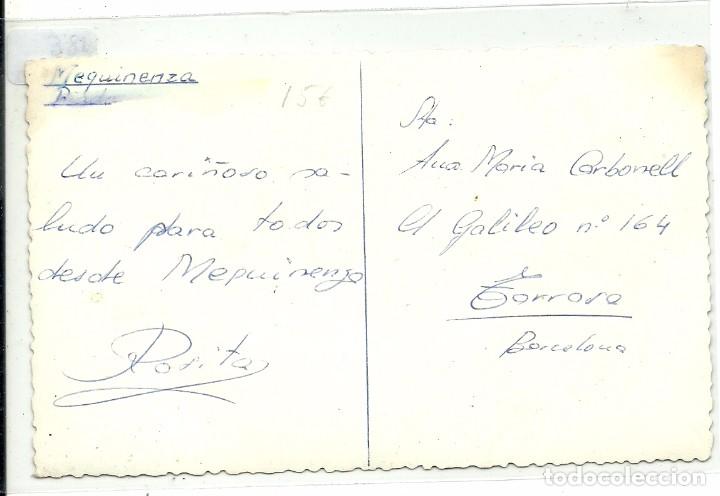 Mequinenza
15€
Un cariñoso sa-
ludo para todos
desde Mequinenza
Rosita
Sta:
Ana Maria Carbonell
C/ Galileo nº 164
Tarrasa
Barcelona
todocoleccion